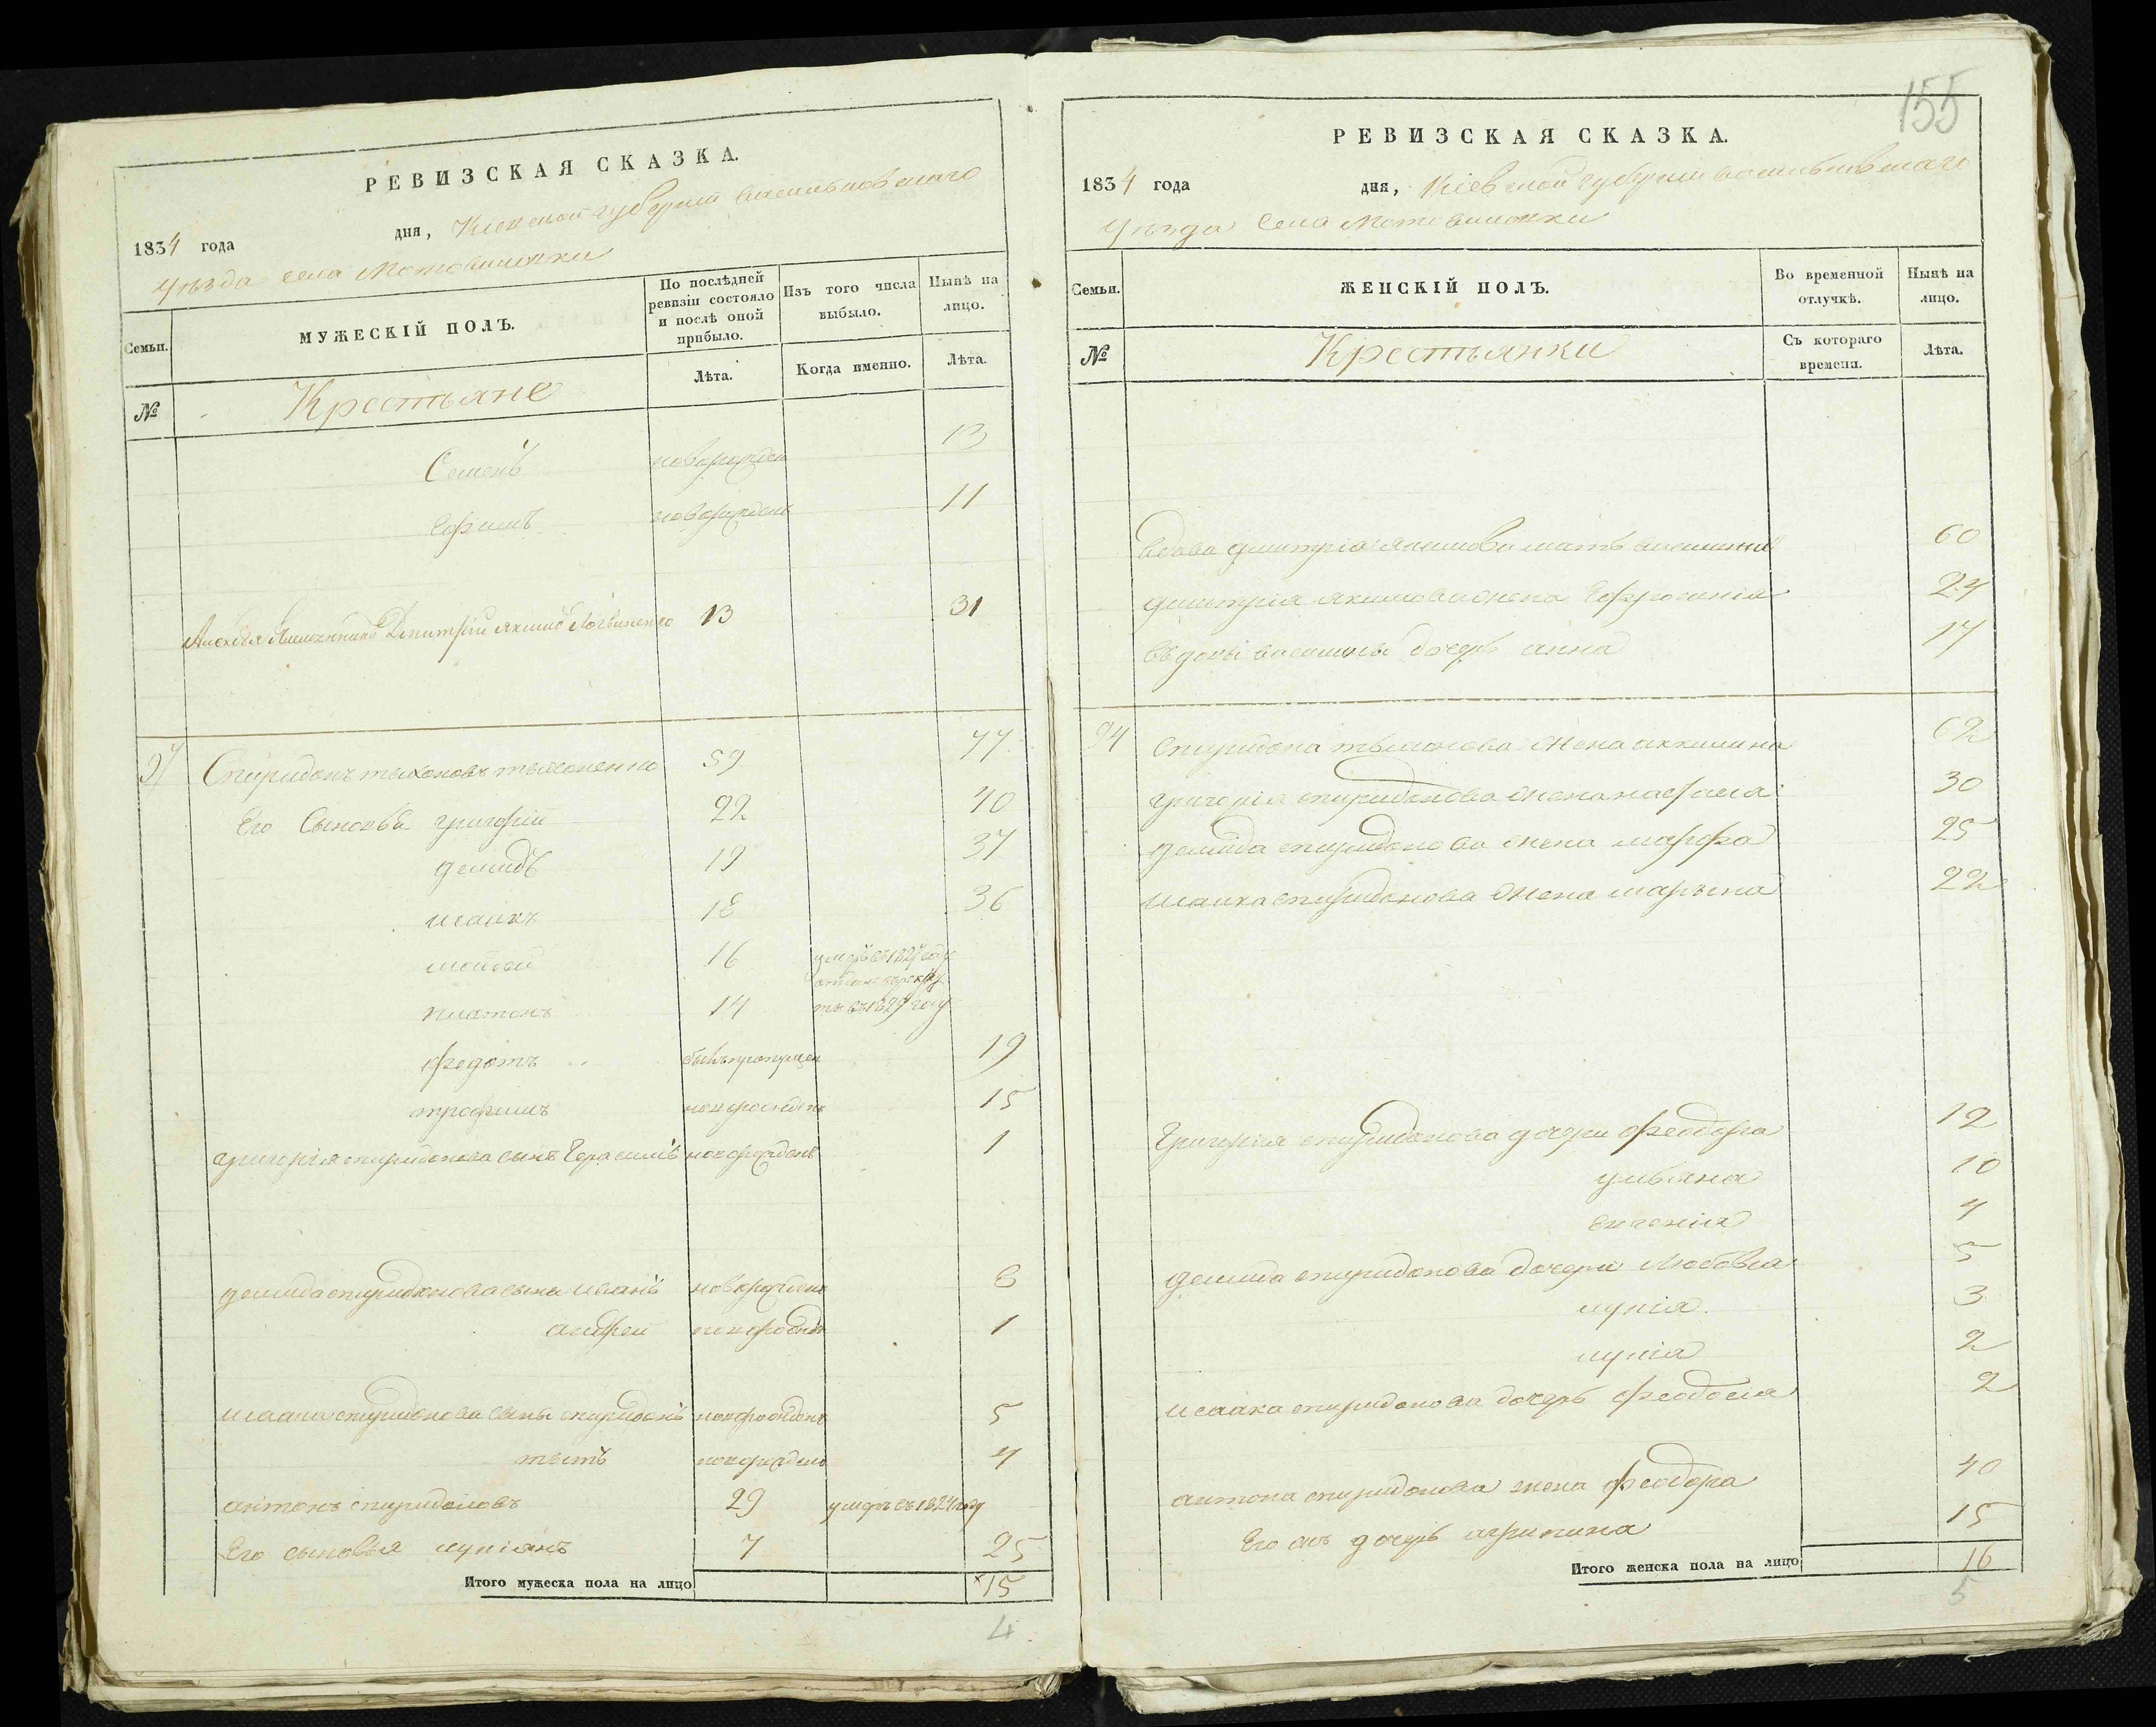 РЕВИЗСКАЯ СКАЗКА.
1834 года дня, Киевской губернии васильковскаго
уезда села Мотовиловки
Семьи.
МУЖЕСКІЙ ПОЛЪ.
По послѣдней ревизіи состояло и послѣ оной прибыло.
Изъ того числа выбыло.
Нынѣ на лицо.
№
Крестьяне
Лѣта.
Когда именно.
Лѣта.
Семенъ новорожден 13
Ефимъ новорожденъ 11
Дмитрій якимовъ 13 31
Спиридонъ тыхоновъ 59 77
Его Сыновья григорій 22 40
демидъ 19 37
исаакъ 18 36
мойсей 16 умеръ въ 1827 году
платонъ 14 отданъ въ рекру
ты въ 1827 году
федотъ бывъ пропущен 19
трофимъ новорожденъ 15
григорія спиридонова сынъ Герасимъ новорожденъ 1
демида спиридонова сыны иванъ новорожден 8
андрей новорожден 1
исаака спиридонова сыны спиридонъ новорожденъ 5
титъ новорожден 4
антонъ спиридоновъ 29 умеръ въ 1824 году
Его сыновья купіянъ 7 25
Итого мужеска пола на лицо 15
4
155
РЕВИЗСКАЯ СКАЗКА.
1834 года дня, Кіевской губерніи васильковскаго
уезда села Мотовиловки
Семьи.
ЖЕНСКІЙ ПОЛЪ.
Во временной отлучкѣ.
Нынѣ на лицо.
№
Крестьянки
Съ котораго времени.
Лѣта.
вдова дмитрія якимова мать 60
дмитрія якимова жена Ефросинія 24
вдовы дочерь анна 17
спиридона жена 62
григорія спиридонова жена 30
демида спиридонова жена марфа 25
исаака спиридонова жена марына 22
Григорія спиридонова дочери феодора 12
ульяна 10
4
демида спиридонова дочери Любовья 5
3
2
исаака спиридонова дочерь феодосия 2
антона спиридонова жена феодора 40
Его дочерь агрипина 15
Итого женска пола на лицо 16
5